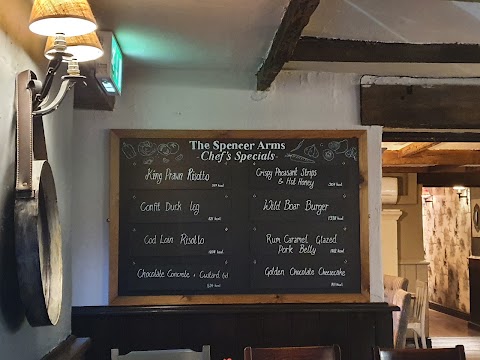 The Spencer Arms
-Chef's Specials-
King Prawn Risotto
Confit Duck Leg
Cod Loin Risotto
Chocolate Concrete + Custard (v)
Crispy Pheasant Strips
& Hot Honey
Wild Boar Burger
Rum Caramel Glazed
Pork Belly
Golden Chocolate Cheesecake